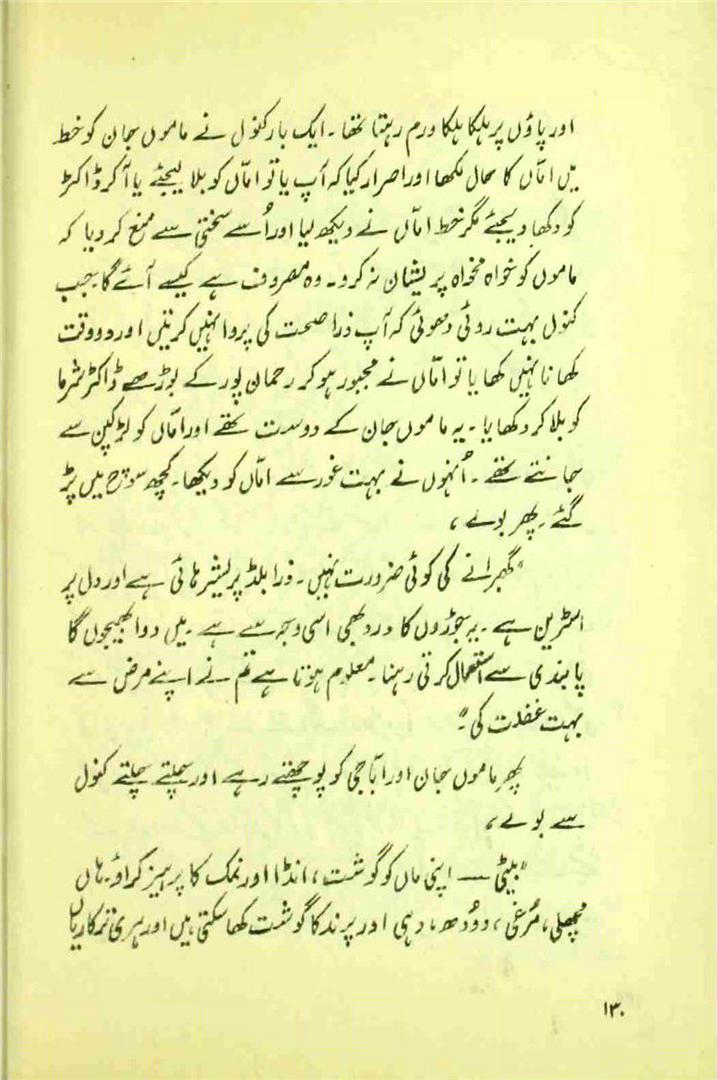 اور پاؤں پر ہلکا ہلکا ورم رہتا تھا ۔ ایک بار کنول نے ماموں جان کو خط
میں امّاں کا حال لکھا اور اصرار کیا کہ آپ یا تو امّاں کو بلا لیجئے یا آکر ڈاکٹر
کو دکھا دیجئے مگر خط امّاں نے دیکھ لیا اور اُسے سختی سے منع کر دیا کہ
ماموں کو خواہ مخواہ پریشان نہ کرو ۔ وہ مصروف ہے کیسے آئے گا۔ جب
کنول بہت روئی دھوئی کہ آپ ذرا صحت کی پروا نہیں کرتیں اور دو وقت
کھانا نہیں کھایا تو امّاں نے مجبور ہو کر رحمان پور کے بوڑھے ڈاکٹر شرما
کو بلا کر دکھایا ۔ یہ ماموں جان کے دوست تھے اور امّاں کو لڑکپن سے
جانتے تھے ۔ اُنہوں نے بہت غور سے امّاں کو دیکھا۔ کچھ سوچ میں پڑ
گئے۔ پھر بولے ،
"گھبرانے کی کوئی ضرورت نہیں ۔ ذرا بلڈ پریشر ہائی ہے اور دل پر
اسٹرین ہے ۔ یہ جوڑوں کا درد بھی اسی وجہ سے ہے ۔ میں دوا بھیجوں گا
پابندی سے استعمال کرتی رہنا ۔ معلوم ہوتا ہے تم نے اپنے مرض سے
بہت غفلت کی۔"
پھر ماموں جان اور ابّا جی کو پوچھتے رہے اور چلتے چلتے کنول
سے بولے ،
"بیٹی — اپنی ماں کو گوشت ، انڈا اور نمک کا پرہیز کراؤ۔ ہاں
مچھلی ، مُرغی ، دودُھ ، دہی اور پرند کا گوشت کھا سکتی ہیں اور ہری ترکاریاں
۱۳۰